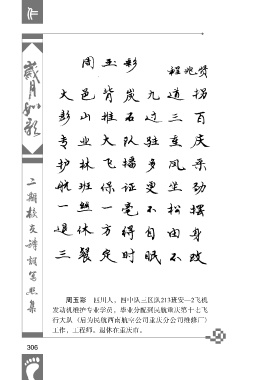 作
岁月如歌
二期校友诗词写照集
周玉彩
大邑背炭九道拐
彭山推石过三百
专业大队驻重庆
护林飞播多风采
航班保证更坐劲
一丝一毫不松摆
退休方得自由身
三餐定时眠不改
周玉彩 四川人。四中队三区队213班安—2飞机
发动机维护专业学员。毕业分配到民航重庆第十七飞
行大队（后为民航西南航空公司重庆分公司维修厂）
工作，工程师。退休在重庆市。
306